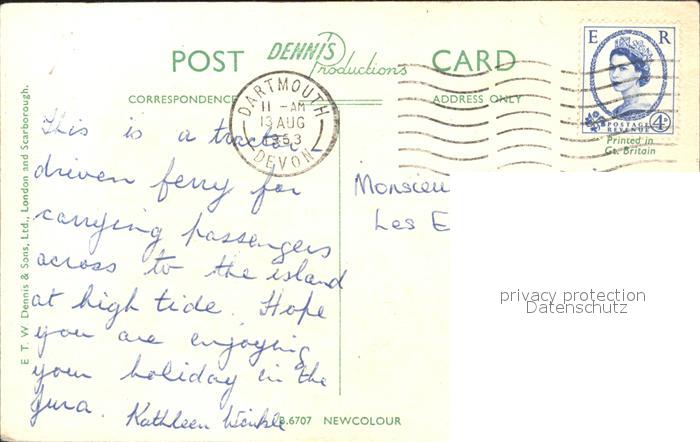 POST DENNIS Productions CARD
CORRESPONDENCE ADDRESS ONLY
DARTMOUTH
11 - AM
13 AUG
1963
DEVON
E R
POSTAGE
REVENUE 4D
Printed in
Gt. Britain
This is a tractor
driven ferry for
carrying passengers
across to the island
at high tide. Hope
you are enjoying
your holiday in the
Jura. Kathleen
Monsieu
Les E
privacy protection
Datenschutz
E T. W Dennis & Sons, Ltd., London and Scarborough.
B.6707 NEWCOLOUR